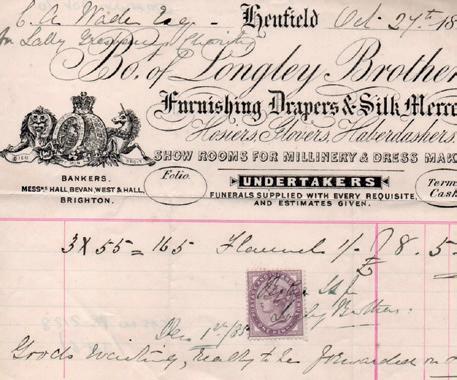 C. A. Wade Esq. Henfield Oct. 27th 18
Lally Charity
Bot. of Longley Brother
Furnishing Drapers & Silk Merce
Hosiers, Glovers, Haberdashers
SHOW ROOMS FOR MILLINERY & DRESS MAK
BANKERS.
MESSRS HALL, BEVAN, WEST & HALL,
BRIGHTON.
Folio.
UNDERTAKERS
FUNERALS SUPPLIED WITH EVERY REQUISITE,
AND ESTIMATES GIVEN.
Term
Cash
3 X 55 = 165 Flannel 1/- 8. 5
Longley Brothers
Dec 1st/85
Goods waiting, ready to be forwarded on